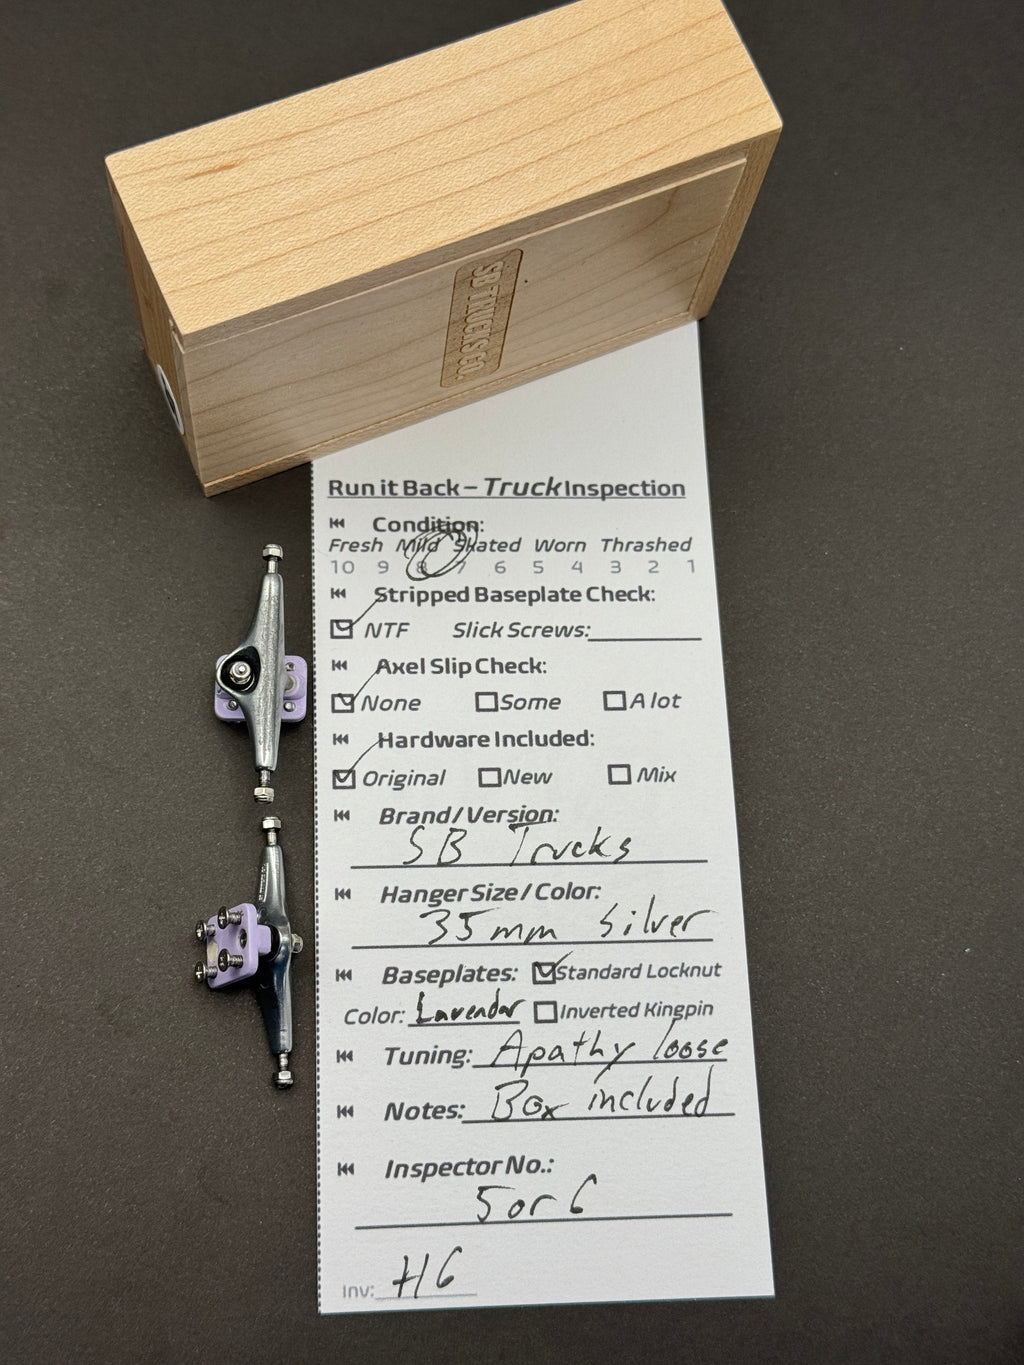 SB TRUCKS CO.
Run it Back – Truck Inspection
Condition:
Fresh Mild Skated Worn Thrashed
10 9 8 7 6 5 4 3 2 1
Stripped Baseplate Check:
NTF Slick Screws:
Axel Slip Check:
None Some A lot
Hardware Included:
Original New Mix
Brand/Version:
SB Trucks
Hanger Size/Color:
35mm Silver
Baseplates: Standard Locknut
Color: Lavendar Inverted Kingpin
Tuning: Apathy loose
Notes: Box included
Inspector No.:
5 or 6
Inv: H6